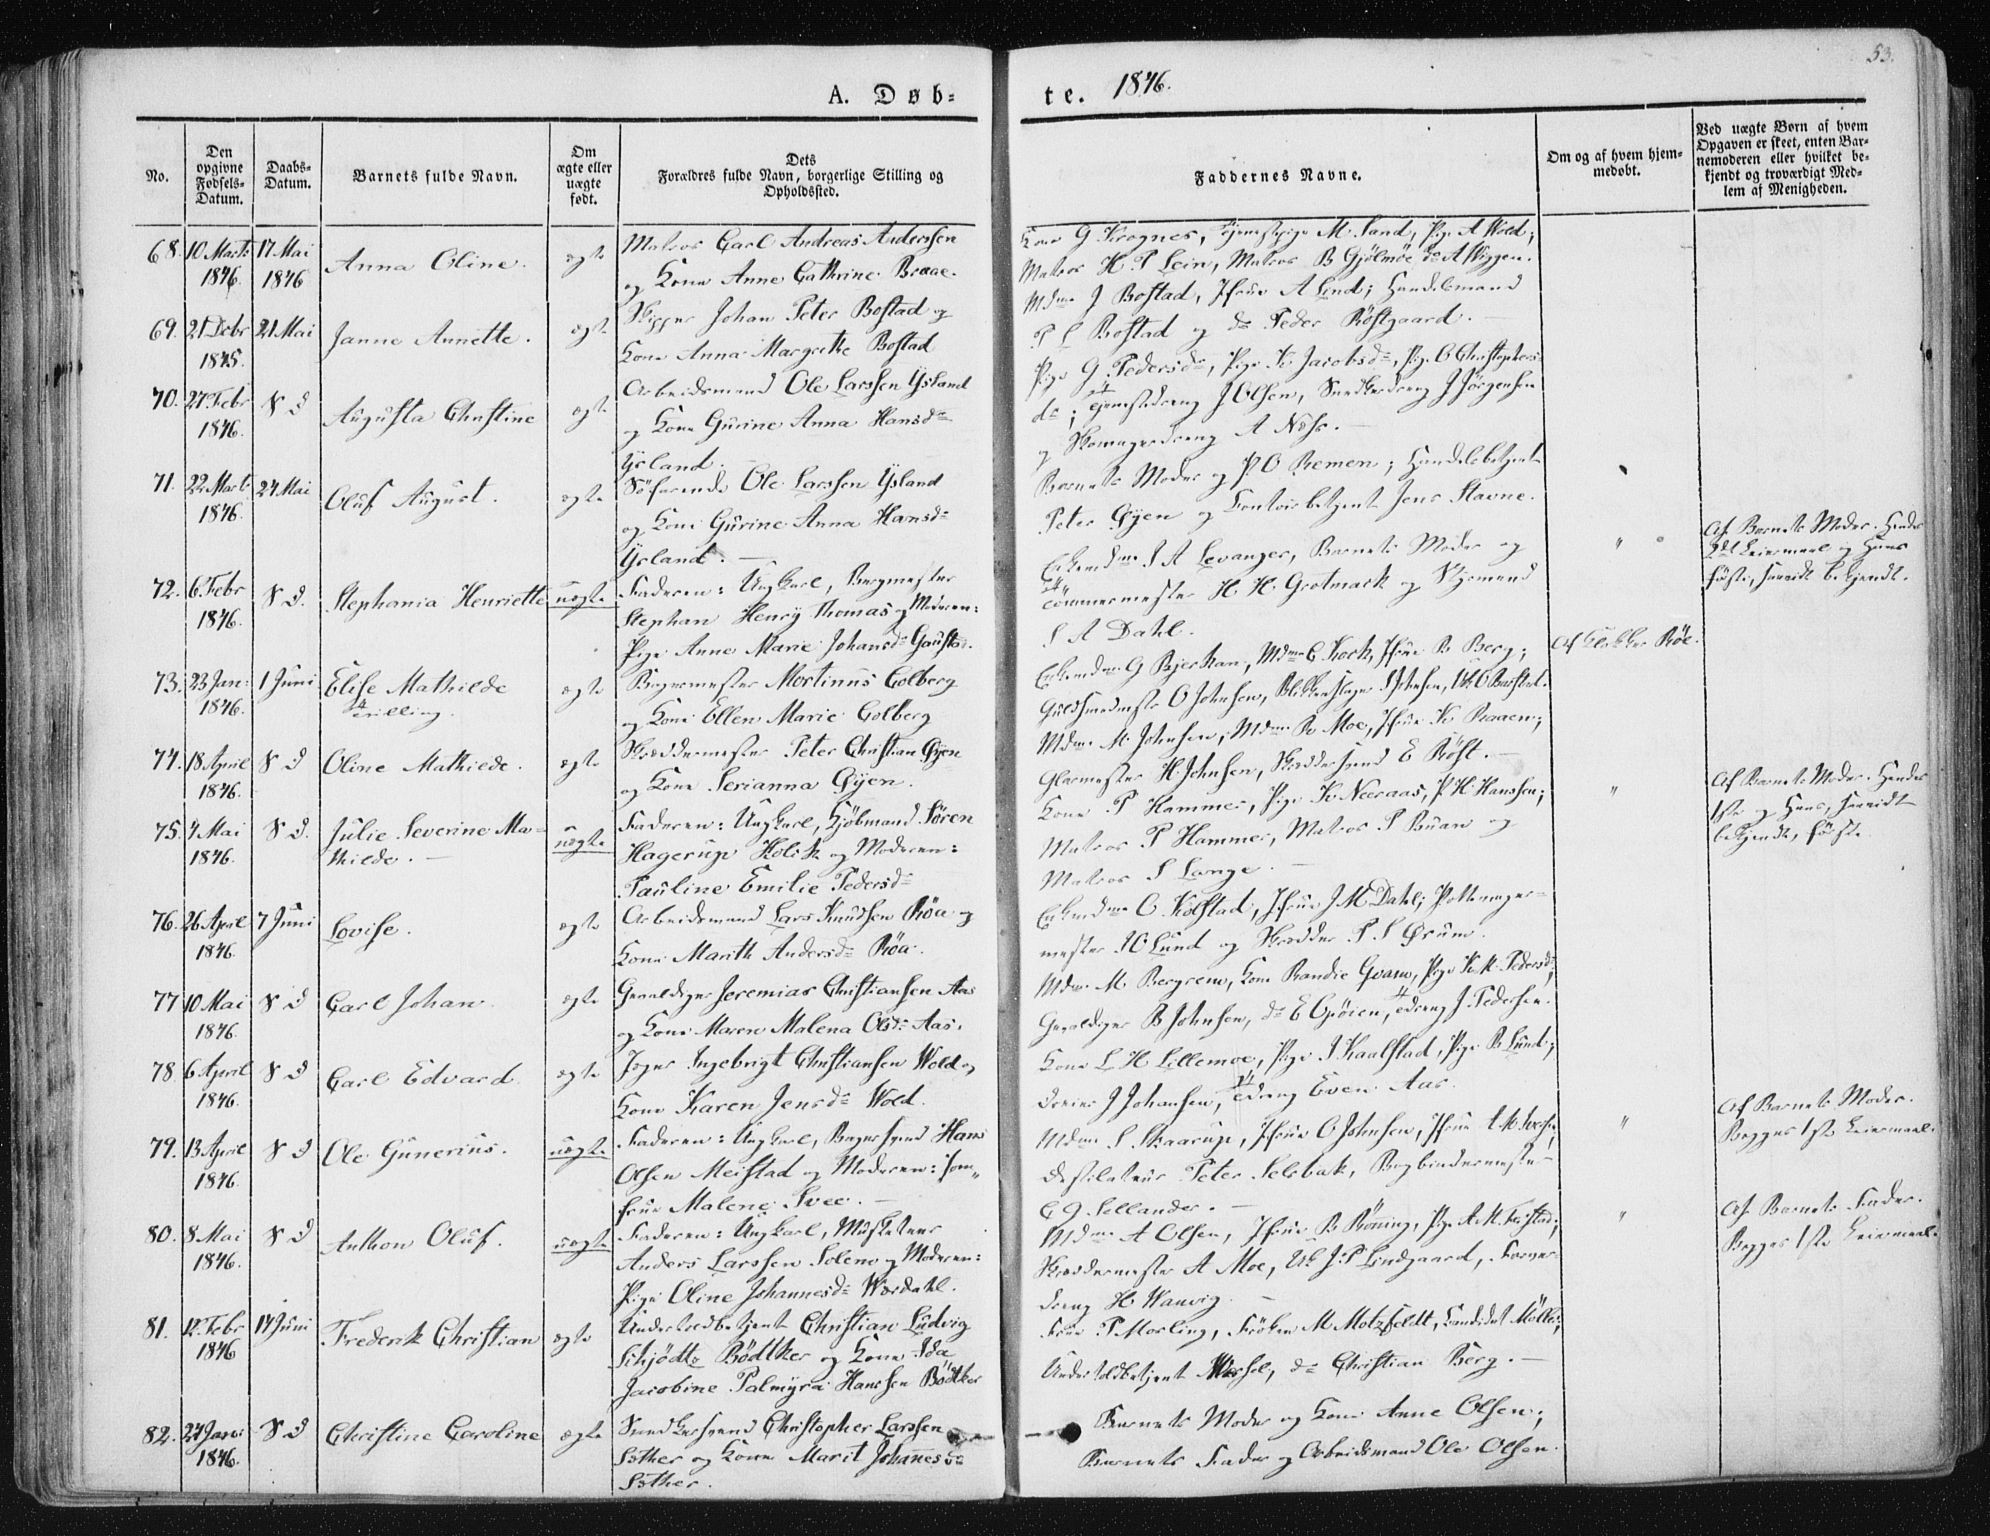 53.
A. Døb-
te. 1846.
No.
Den opgivne Fødsels-Datum.
Daabs-Datum.
Barnets fulde Navn.
Om ægte eller uægte født.
Dets
Forældres fulde Navn, borgerlige Stilling og
Opholdssted.
Faddernes Navne.
Om og af hvem hjem-
medøbt.
Ved uægte Børn af hvem
Opgaven er skeet, enten Bar-
nemoderen eller hvilket be-
kjendt og troværdigt Med-
lem af Menigheden.
68. 10 Marts 1846. 17 Mai 1846 Anna Oline. ægte
Matros Carl Andreas Anderssen
og Kone Anne Cathrine Braae.
Kone G Krognes, Tjenestepige M. Sand, Pige A Wold;
Matros H. P Lein, Matros B Gjölmöe, do A Wiggen.
69. 21 Debr 1845. 21 Mai Janne Annette. ægte
Skipper Johan Peter Bostad og
Kone Anna Margrethe Bostad
Mdme J Bostad, Jfrue A Lind; Handelsmand
P L Bostad og do Peder Röstgaard.
70. 27 Febr 1846. S D Augusta Christine ægte
Arbeidsmand Ole Larssen Ysland
og Kone Gurine Anna Hansdr
Ysland.
Pige G Pedersdr, Pige K. Jacobsdr, Pige O Christophers-
dr; Tjenestedreng J Olsen, Snedkerdreng J Jörgensen
og Skomagerdreng A Næss.
71. 22 Marts 1846. 24 Mai Oluf August. ægte
Söfarende Ole Larssen Ysland
og Kone Gurine Anna Hansdr
Ysland.
Barnets Moder og P O Remen; Handelsbetjent
Peter Öyen og Contoirbetjent Jens Stavne.
72. 6 Febr 1846. S D. Stephania Henriette uægte
Faderen: Ungkarl, Bergmester
Stephan Henry Thomas og Moderen:
Pige Anne Marie Johansdr
Enkemdme S A Levanger, Barnets Moder og
Tömmermester H. H. Grotmack og Styrmand
S A Dahl.
"
Af Barnets Moder. Hendes
2det Leiermaal og Hans
förste, saavidt bekjendt.
73. 23 Jan: 1846. 1 Juni Elise Mathilde
Trilling. ægte
Bagermester Mortinus Colberg
og Kone Ellen Marie Colberg
Enkemdme G Bjerkan, Mdme C. Kock, Jfrue B Berg;
Guldsmedmester O Johnsen, Blikkenslager S Johnsen,
Af Klokker Röe.
74. 18 April 1846. S D Oline Mathilde. ægte
Skreddermester Peter Christian Öyen
og Kone Serianna Öyen.
Mdme M. Johnsen, Mdme B Moe, Jfrue K Raaen;
Glarmester H. Johnsen, Skreddersvend E Röst.
75. 4 Mai 1846. S D. Julie Severine Ma-
thilde. uægte
Faderen: Ungkarl, Kjöbmand Sören
Hagerup Holck og Moderen:
Pauline Emilie Pedersdr
Kone P Hammer, Pige K Neeraas, P. H. Hanssen;
Matros P Hammer, Matros P Buan og
Matros S Lange.
"
Af Barnets Moder. Hendes
1ste og Hans, saavidt
bekjendt, förste.
76. 26 April 1846. 7 Juni Lovise. ægte
Arbeidsmand Lars Knudsen Röa og
Kone Marith Andersdr Röa.
Enkemdme O. Kolstad, Jfrue J M Dahl; Pottemager-
mester J C Lund og Skrædder P. S Örum.
77 10 Mai 1846. S D Carl Johan. ægte
Jeremias Christiansen Aas
og Kone Maren Malena Olsdr Aas.
Mdme M. Bergrem, Kone Randie Qvam, Pige K. M. Pedersdr;
B Johnsen, do E Opöien, Tdreng J. Pedersen.
78 6 April 1846. S D Carl Edvard. ægte
Ingebrigt Christiansen Wold og
Kone Karen Jensdr Wold.
Kone L H Lillemoe, Pige J Kaalstad, Pige B Lund;
Dreier J Johansen, Tdreng Even Aas.
79. 13 April 1846. S D Ole Gunerius. uægte
Faderen: Ungkarl, Bagersvend Hans
Olsen Meistad og Moderen: Jom-
frue Malene Svee.
Mdme S Skaarup, Jfrue O Johnsen, Jfrue
Destilateur Peter Selsbak, Bogbindermester
C J. Sellander.
"
Af Barnets Moder.
Begges 1ste Leiermaal.
80. 8 Mai 1846. S D Anthon Oluf. uægte
Faderen: Ungkarl, Musketeer
Anders Larssen Solem og Moderen:
Pige Oline Johannesdr Værdahl.
Mdme A Olsen, Jfrue B Röning, Pige A. M.
Skreddermester A Moe, Uk J. P Lindgaard, Farver-
dreng H. Wanvig
"
Af Barnets Fader.
Begges 1ste Leiermaal.
81. 12 Febr 1846 14 Juni Frederik Christian ægte
Undertoldbetjent Christian Ludvig
Schjödtz Bödtker og Kone Ida
Jacobine Palmyra Hanssen Bödtker
Frue P Morling, Fröken M Motzfeldt, Candidat Möller,
Undertoldbetjent Wessel, do Christian Berg.
82. 24 Janr 1846. S D Christine Caroline ægte
Snedkersvend Christopher Larssen
Sæther og Kone Marit Johanesdr
Sæther.
Barnets Moder og Kone Anne Olsen;
Barnets Fader og Arbeidsmand Ole Olsen.